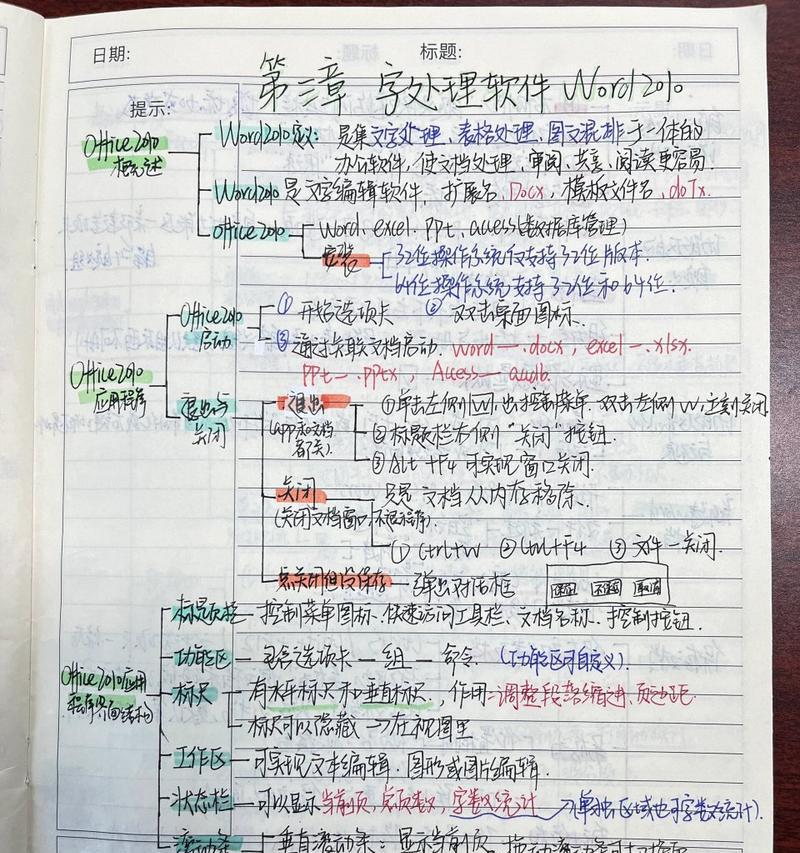 日期:
标题:
第三章 字处理软件 Word2010
提示:
Office2010
概述
Word2010定义: 是集文字处理、表格处理、图文混排于一体的
办公软件, 使文档处理、审阅、共享、阅读更容易.
Word2010 是文字编辑软件, 扩展名.Docx, 模板文件名.doTx.
office2010 Word. excel. ppt. access(数据库管理)
安装 32位操作系统仅支持32位版本.
64位操作系统支持32位和64位.
Office2010
应用程序
Office2010
启动
① 开始选项卡 ② 双击桌面图标.
③ 通过关联文档启动. Word—.docx, excel—.xlsx.
PPt—.pptx, Access—accdb.
退出与
关闭
退出
(app和文档
都关).
①单击左侧W, 出控制菜单. 双击左侧W, 立刻关闭.
②标题栏右侧“关闭”按钮.
③Alt+F4 可实现窗口关闭.
关闭 只是文档从内存移除.
(关闭文档窗口, 不退程序).
① Ctrl+W ② Ctrl+F4 ③ 文件—关闭.
点关闭但没保存 — 弹出对话框
保存 不保存 取消
Office2010应用
程序界面结构
标题栏 — 控制菜单图标、快速访问工具栏、文档名称、控制按钮.
功能区 — 包含选项卡—组—命令. (功能区可自定义).
标尺 — 有水平标尺和垂直标尺, 作用: 调整段落缩进、页边距.
标尺可以隐藏 → 在视图里
工作区 — 可实现文本编辑、图形或图片编辑.
状态栏 — 可以显示当前页, 总页数, 字数统计 → (单独区域也可字数统计).
滚动条 垂直滚动条: 显示当前页